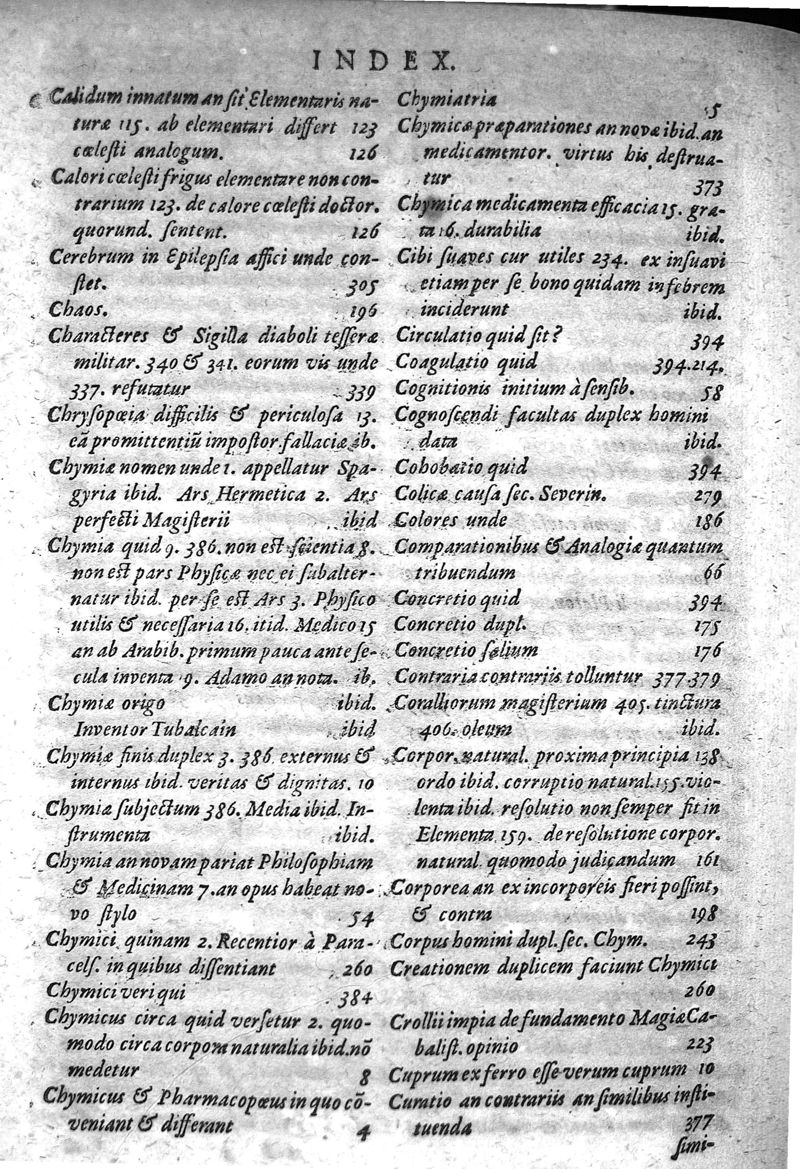 INDEX.
Calidum innatum an sit Elementaris na-
turæ 115. ab elementari differt 123
cœlesti analogum. 126
Calori cœlesti frigus elementare non con-
trarium 123. de calore cœlesti doctor.
quorund. sentent. 126
Cerebrum in Epilepsia affici unde con-
stet. 305
Chaos. 196
Characteres & Sigilla diaboli tesseræ
militar. 340 & 341. eorum vis unde
337. refutatur 339
Chrysopœia difficilis & periculosa 13.
eã promittentiũ impostor. fallaciæ ib.
Chymiæ nomen unde 1. appellatur Spa-
gyria ibid. Ars Hermetica 2. Ars
perfecti Magisterii ibid
Chymia quid 9. 386. non est scientia 8.
non est pars Physicæ nec ei subalter-
natur ibid. per se est Ars 3. Physico
utilis & necessaria 16. itid. Medico 15
an ab Arabib. primum pauca ante se-
cula inventa 9. Adamo an nota. ib.
Chymiæ origo ibid.
Inventor Tubalcain ibid
Chymiæ finis duplex 3. 386 externus &
internus ibid. veritas & dignitas. 10
Chymiæ subjectum 386. Media ibid. In-
strumenta ibid.
Chymia an novam pariat Philosophiam
& Medicinam 7. an opus habeat no-
vo stylo 54
Chymici quinam 2. Recentior à Para-
cels. in quibus dissentiant 260
Chymici veri qui 384
Chymicus circa quid versetur 2. quo-
modo circa corpora naturalia ibid. nõ
medetur 8
Chymicus & Pharmacopœus in quo cõ-
veniant & differant 4
Chymiatria 5
Chymicæ præparationes an novæ ibid. an
medicamentor. virtus his destrua-
tur 373
Chymica medicamenta efficacia 15. gra-
ta 16. durabilia ibid.
Cibi suaves cur utiles 234. ex insuavi
etiam per se bono quidam in febrem
inciderunt ibid.
Circulatio quid sit? 394
Coagulatio quid 394.214.
Cognitionis initium à sensib. 58
Cognoscendi facultas duplex homini
data ibid.
Cohobatio quid 394
Colicæ causa sec. Severin. 279
Colores unde 186
Comparationibus & Analogiæ quantum
tribuendum 66
Concretio quid 394
Concretio dupl. 175
Concretio salium 176
Contraria contrariis tolluntur 377.379
Coralliorum magisterium 405. tinctura
406. oleum ibid.
Corpor. natural. proxima principia 138
ordo ibid. corruptio natural. 155. vio-
lenta ibid. resolutio non semper fit in
Elementa 159. de resolutione corpor.
natural. quomodo judicandum 161
Corporea an ex incorporeis fieri possint,
& contra 198
Corpus homini dupl. sec. Chym. 243
Creationem duplicem faciunt Chymici
260
Crollii impia de fundamento Magiæ Ca-
balist. opinio 223
Cuprum ex ferro esse verum cuprum 10
Curatio an contrariis an similibus insti-
tuenda 377
simi-